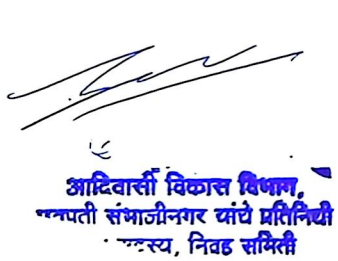 आदिवासी विकास विभाग,
संभाजीनगर यांचे प्रतिनिधी
निवड समिती